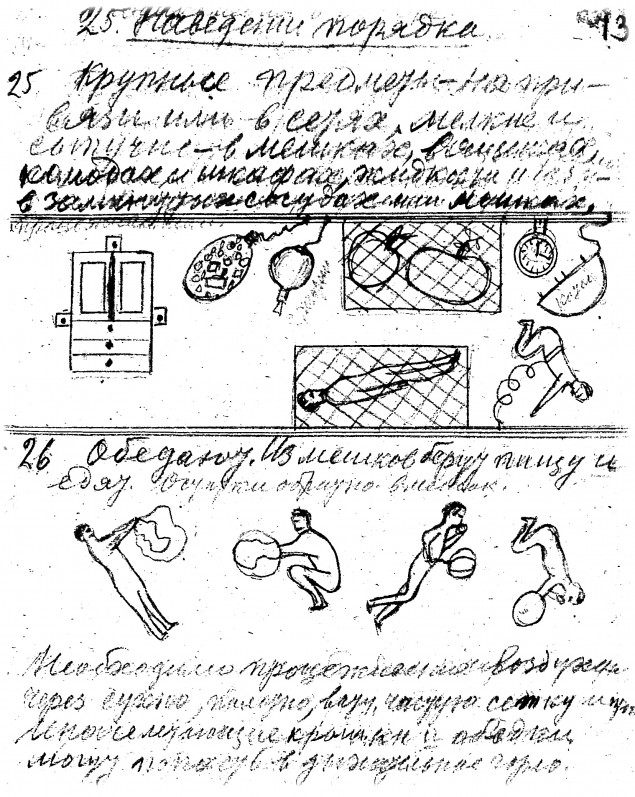 25. Наведение порядка 13
25 Крупные предметы — на при-
вязи или в сетях, мелкие и
сыпучие — в мешках, в ящиках,
комодах и шкафах, жидкости и газы —
в замкнутых сосудах или мешках.
26 Обедают. Из мешков берут пищу и
едят. Остатки обратно в мешок.
Необходимо процеживание воздуха
через сухую, частую сетку и
крошки и объедки
могут попасть в дыхательное горло.